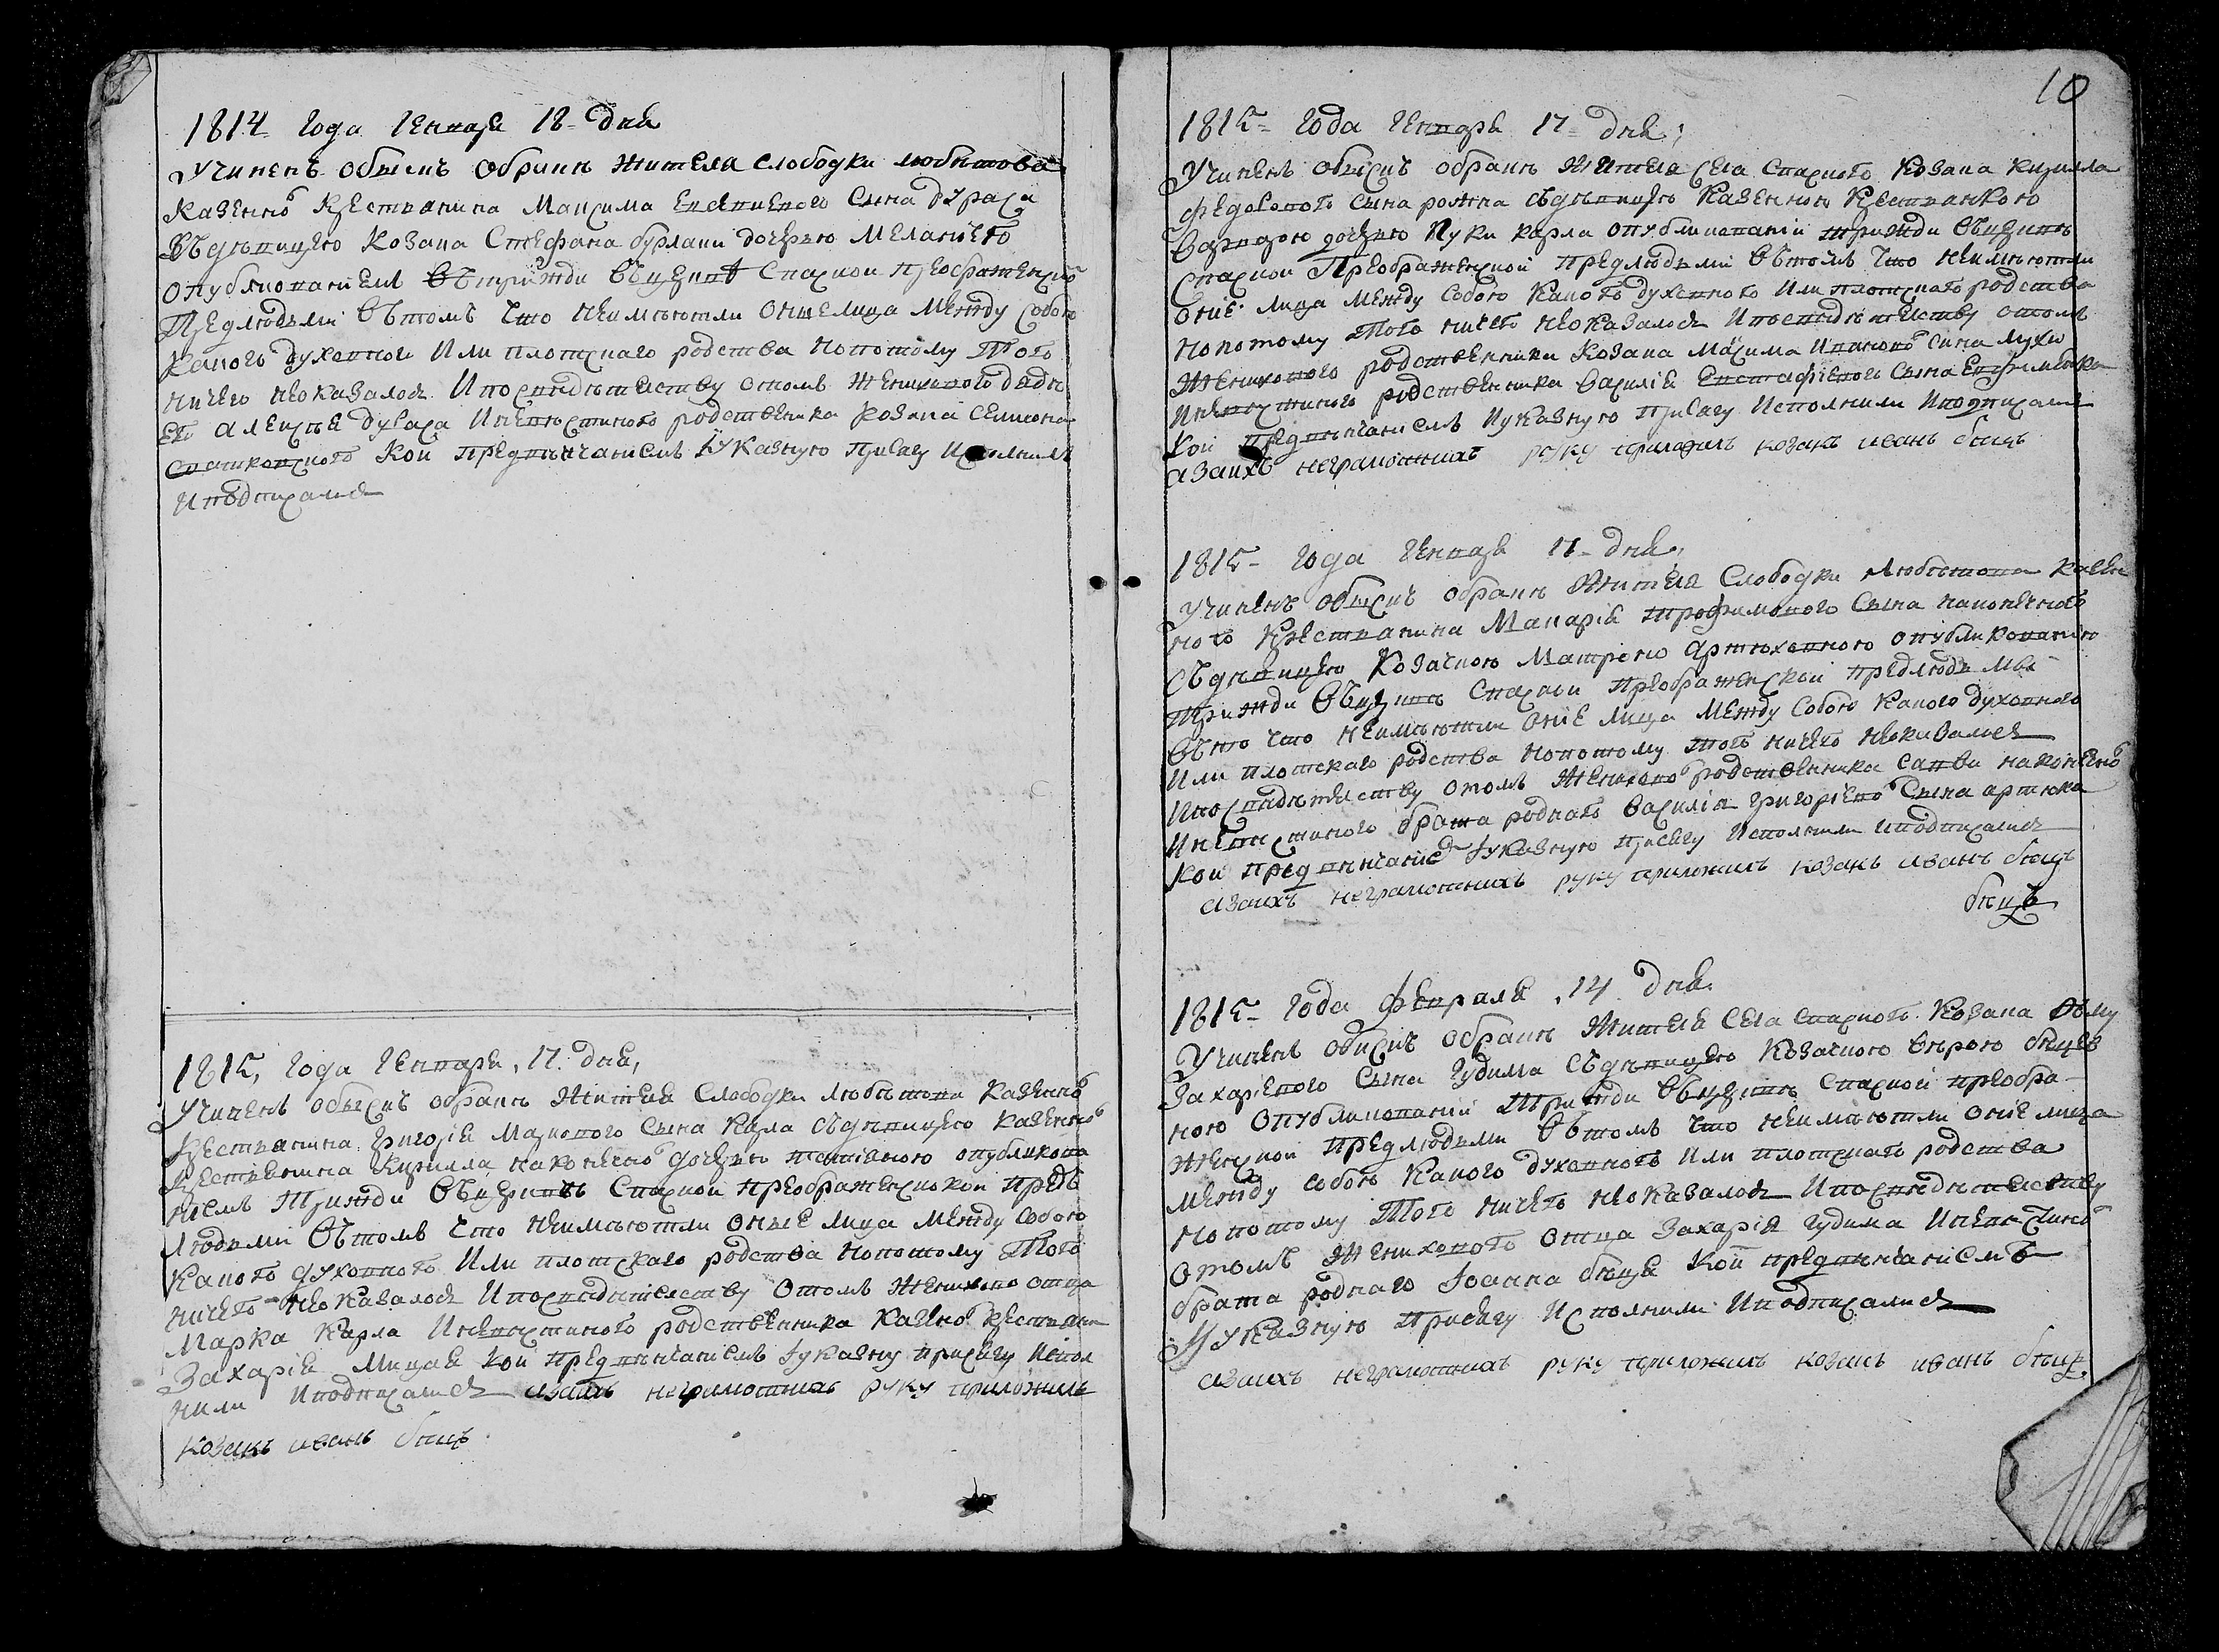 1814 Года Генваря 18 дня
Учиненъ обыскъ обракѣ жителя слободки любитова
казенног крестьянина Максима сына дураса
Съдѣвицею козака Стефана бурлаки дочерью Меланіею
опубликованіемъ трижди вьцеркве Спаской преображенско
Предлюдьми Вътомъ что неимѣютли оние лица между собою
какого духовного или плотскаго родства нопотому того
ничего неоказалося Ипосвидѣтелству отомъ женихового дяди
его алексѣя дураса Иневѣстиного родственика козака
кои предвѣнчаніемъ Іуказную присягу исполнили
иподписалися
1815, Года Генваря, 17. дня,
Учиненъ обыскъ обракѣ жителя слободки любитова казенног
крестьянина григорія Маркового сына карла съдѣвицею казенног
крестьянина кирилла дочерью опубликова
ніемъ трижди Вьцеркве Спаской преображенской предъ
людьми Вътомъ что неимѣютли оные лица между собою
какого духовного Или плотскаго родства нопотому того
ничего неоказалося Ипосвидѣтелству отомъ женихово отца
Марка карла Иневѣстиного родственика казеног крестьянин
Захарія Мицая кои предвѣнчаніемъ Іуказну присягу испол
нили Иподписалися азаихъ неграмотнихъ руку приложилъ
козакъ иванъ биць
10
1815 Года Генваря 17 дня,
Учиненъ обыскъ обракѣ жителя села Спаского козака кирилла
федорового сына рожка съдѣвицею казенною крестьянкою
Варварою дочерью Луки карла опубликованіи трижди вьцеркве
Спаской Преображенской предлюдьми Вътомъ что неимѣютли
оніе лица между собою какого духовного или плотскаго родства
нопотому того ничего неоказалося Ипосвидѣтелству отомъ
женихового родственика козака Маѯима Иванова сина Мухи
Иневѣстиного родственика Василія Евстафіевого сына
кои предвѣнчаніемъ Іуказную присягу исполнили Иподписалися
азаихъ неграмотнихъ руку приложилъ козакъ иванъ биць
1815 Года Генваря 17 дня,
Учиненъ обыскъ обракѣ жителя Слободки любитова казен
ного крестьянина Макарія трофимового сына
съдѣвицею козачкою Матроною артюховною опубликованію
трижди Вьцеркве Спаской преображенской предлюдьми
Въто что неимѣютли оніе лица между собою какого духовного
или плотскаго родства нопотому того ничего неоказалося
Ипосвидѣтелству отомъ жениховог родственика савви
Иневѣстиного брата родного Василія григоріевог сына артюха
кои предвѣнчаніе Іуказную присягу исполнили иподписалися
азаихъ неграмотнихъ руку приложилъ козакъ иванъ биць
биць
1815 Года февраля, 14 дня
Учиненъ обыскъ обракѣ жителя села спаского козака Фому
Захаріевого сына гудима съдѣвицею козачкою вѣрою
ною опубликованіи трижди Вьцеркве Спаской преобра
женской предлюдьми Вътомъ что неимѣютли оніе лица
между собою какого духовного или плотскаго родства
нопотому того ничего неоказалося Ипосвидѣтелству
отомъ женихового отца Захарія гудима Иневѣстиног
брата родного Іоанна биця кои предвѣнчаніемъ
Іуказную присягу исполнили Иподписалися
азаихъ неграмотнихъ руку приложилъ козакъ иванъ биць